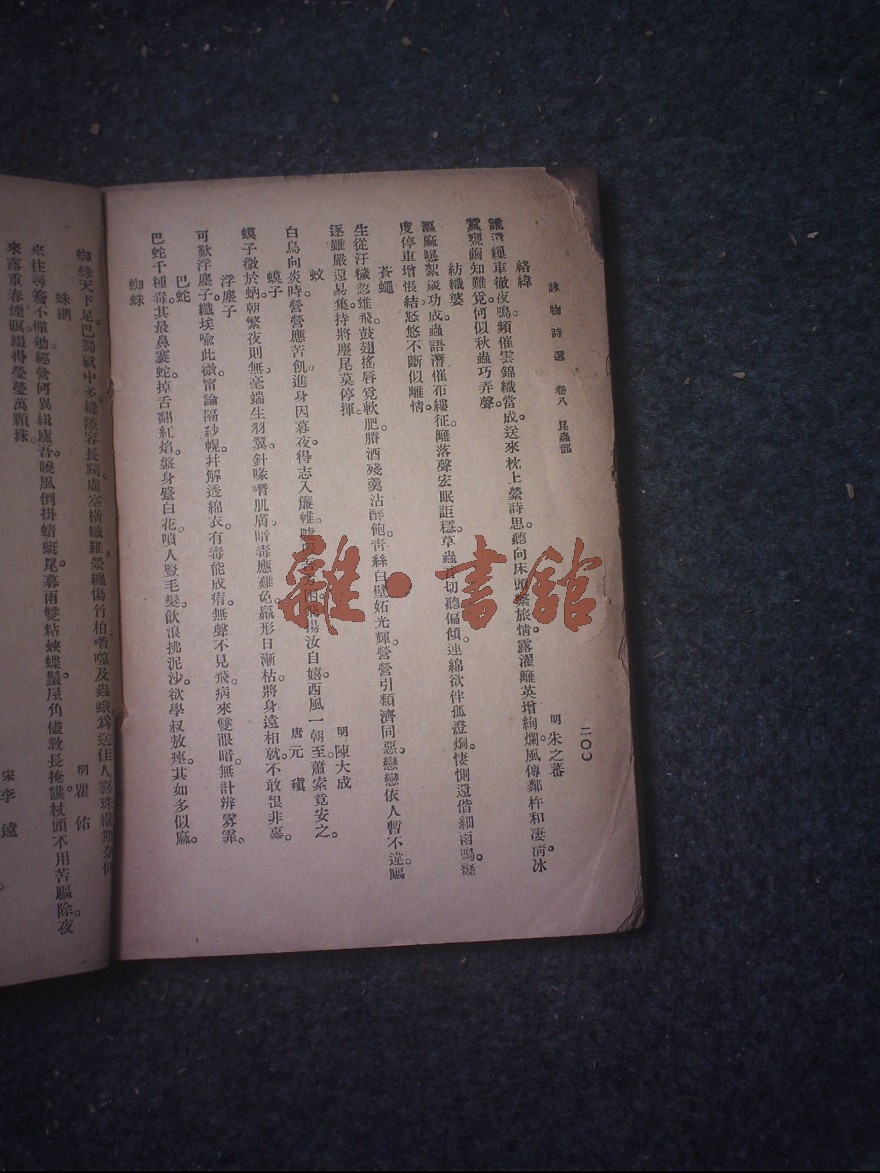 詠物詩選　卷八　昆蟲部
二〇〇
絡緯
明　朱之蕃
繅車徹夜鳴頻催雲錦織當成。送來枕上縈詩思。聽向床頭繫旅情。露濯籬英增絢爛。風傳鄰杵和凄清。冰
蠶甕繭知難覓。何似秋蟲巧弄聲。
紡織婆
漚麻曝絮歲功成。蟲語潛催布縷征。籬落聲宏眠詎穩。草蟲音切聽偏傾。連綿欲伴孤燈炯。悽惻還偕細雨鳴。
度停車增悵結。悠悠不斷似離情。
蒼蠅
生從汙穢忽雄飛。鼓翅搖唇覓軟肥。賸酒殘羹沾醉飽。青絲白璧妬光輝。營營引類濟同惡。戀戀依人暫不違。驅
逐雖嚴還易集。持將麈尾莫停揮。
蚊
明　陳大成
白鳥向炎時。營營應苦飢。進身因暮夜。得志入簾帷。困　揚汝自嬉。西風一朝至。蕭索竟安之。
蟆子
唐　元稹
蟆子微於蚋。朝繁夜則無。毫端生羽翼。針喙噆肌膚。暗毒應難免。羸形日漸枯。將身遠相就。不敢恨非辜。
浮塵子
可歎浮塵子。纖埃喻此微。甯論隔紗幌。并解透綿衣。有毒能成痏。無聲不見飛。病來雙眼暗。無計辨雰霏。
巴蛇
巴蛇千種毒。其最鼻褰蛇。掉舌翻紅焰。盤身蹙白花。噴人豎毛髮。飲浪拂泥沙。欲學叔敖瘞。其如多似麻。
蜘蛛
蜘蛛天下足。巴蜀就中多。縫隙容長踦。虛空橫織羅。縈纏傷竹柏。噆噬及蟲蛾。為送佳人喜。珠櫳無奈何。
蛛網
明　瞿佑
來往尋簷不憚劬。經營何異緝廬吾。曉風倒掛蜻蜓尾。暮雨雙粘蛺蝶鬚。屋角儘教長掩護。杖頭不用苦驅除。夜
來露重春煙暝。綴得瑩瑩萬顆珠。
宋　李遠
雜·書館